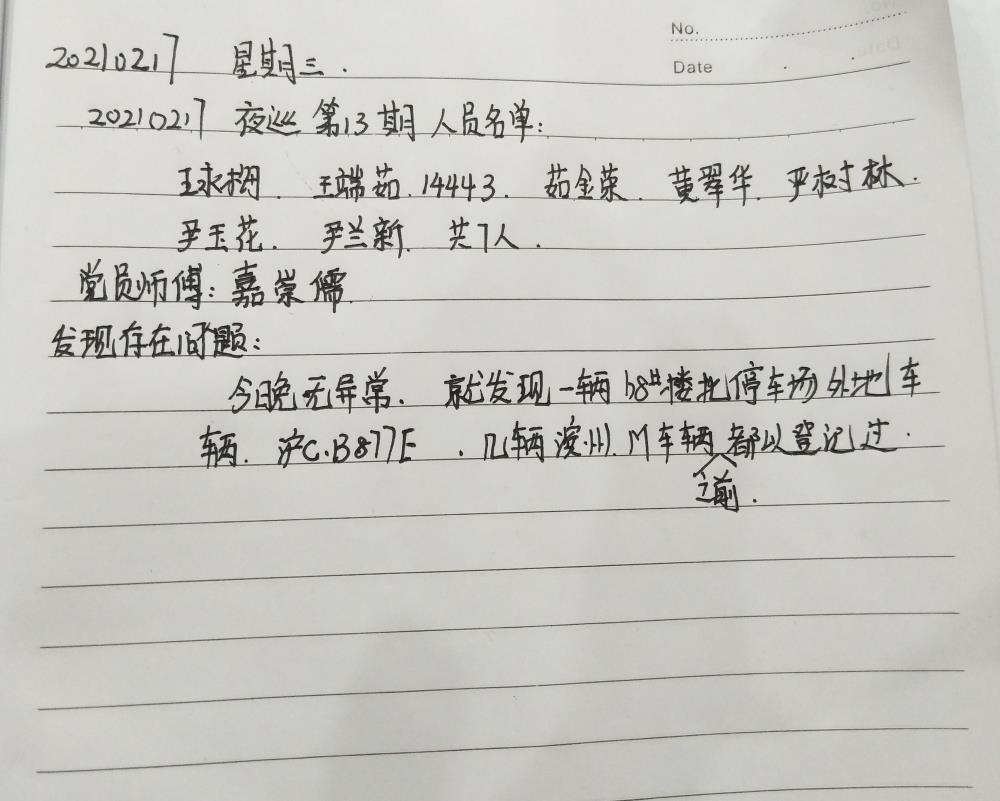 No.
Date
20210217 星期三.
20210217 夜巡 第13期 人员名单:
王永树. 王端茹. 14443. 茹金荣. 黄翠华. 严树林.
尹玉花. 尹兰新. 共7人.
党员师傅: 嘉崇儒.
发现存在问题:
今日晚无异常. 就发现一辆68#楼北停车场外地车
辆. 沪C·B877E. 几辆滨州. M车辆都以登记过.
之前.